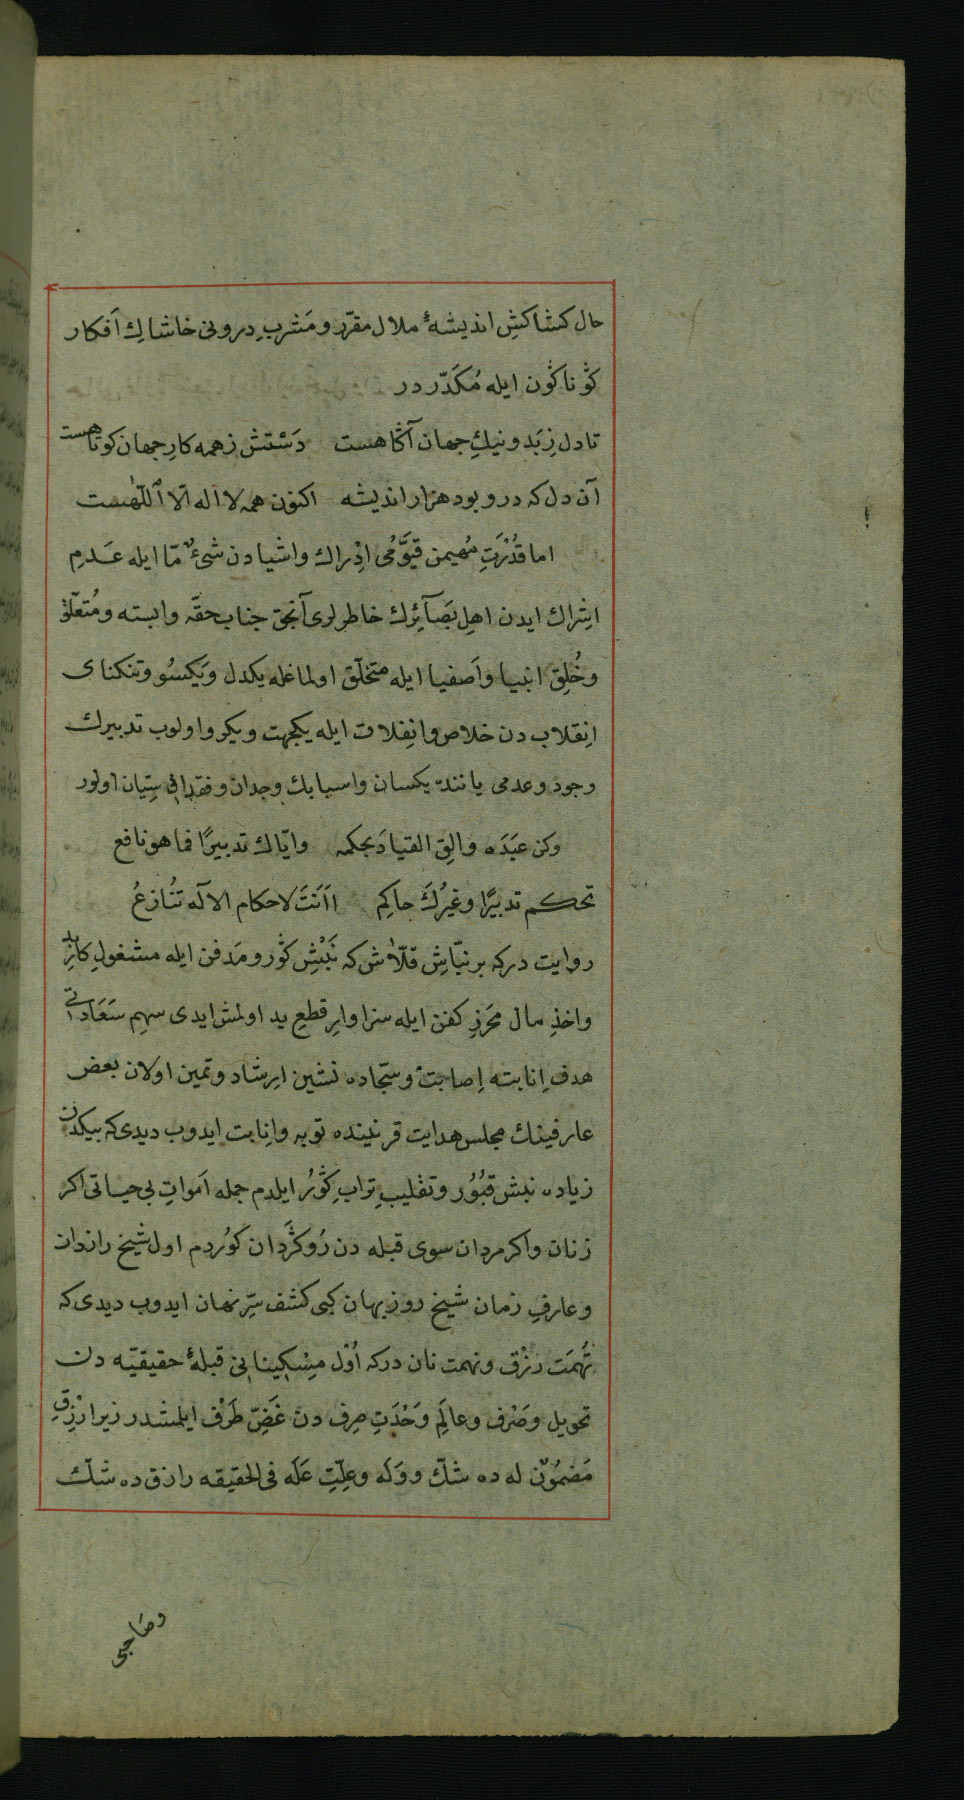 حال كشاكشِ انديشهٔ ملال مقرّر و مَشربِ درونی خاشاكِ اَفكار
كَوناكَون ايله مُكَدّر در
تا دل زِبَد و نيكِ جهان آكاهست دَسْتش زهمه كارِ جهان كوتاهست
آن دل كه درو بود هزار انديشه اكنون همه لا اله الّا اللّهست
اما قُدْرَتِ مُهيمن قيَّومُی اِدْراك واشيادن شئ مّا ايله عَدمِ
اشِراك ايدن اهلِ بَصَآئِرك خاطرلری آنجق جناب حقّه وابسته ومُتعلّق
وخُلِق انبيا واَصفيا ايله متخلّق اولماغله يكدل ويَكسُو وتنكنای
اِنقلاب دن خلاص وانِفلات ايله يكجهت ويكرو اولوب تدبيرك
وجود وعدمی ياننده يكسان واسبابك وجدان وفقدانی سِتيان اولور
وكن عَبَدَه والِقِ القيادَ بحكمه وايّاك تدبيرًا فما هو نافع
تحكم تدبيرًا وغيرُكَ حاكِم اَاَنتَ لاحكام الاله تُنازعُ
روايت دركه بر نبّاشِ قلّاش كه نَبْشِ كَور ومَدفن ايله مشغولِ كارِ بد
واخذِ مال مُحرَزِ كفن ايله سزاوارِ قطعِ يد اولمش ايدی سهم سَعَاداتی
هدف اِنابته اِصابت وسجّاده نشين ارشاد وتمين اولان بعض
عارفينك مجلس هدايت قرنينده توبه وانِابت ايدوب ديدی كه بيكدن
زياده نبش قبُوُر وتقليبِ ترابِ كَوُر ايلدم جمله اَمواتِ بی حياتی اكر
زنان واكر مردان سوی قبله دن رُوكَردَان كَوُردم اول شيخ رازدان
وعارفِ زمان شيخ روزبهان كبی كشف سِرّ نهان ايدوب ديدی كه
تُهمَت رزْق ونهمت نان دركه اُوْل مِسْكينانی قبلهٔ حقيقيّه دن
تحويل وصَرف وعالَمِ وَحْدَتِ صِرف دن غَضِّ طَرْف ايلمشدر زيرا رزْقِ
مَضمُوُن له ده شكّ ووَلَه وعِلّتِ عَلَه فی الحقيقه رازق ده شكّ
وصاحبی